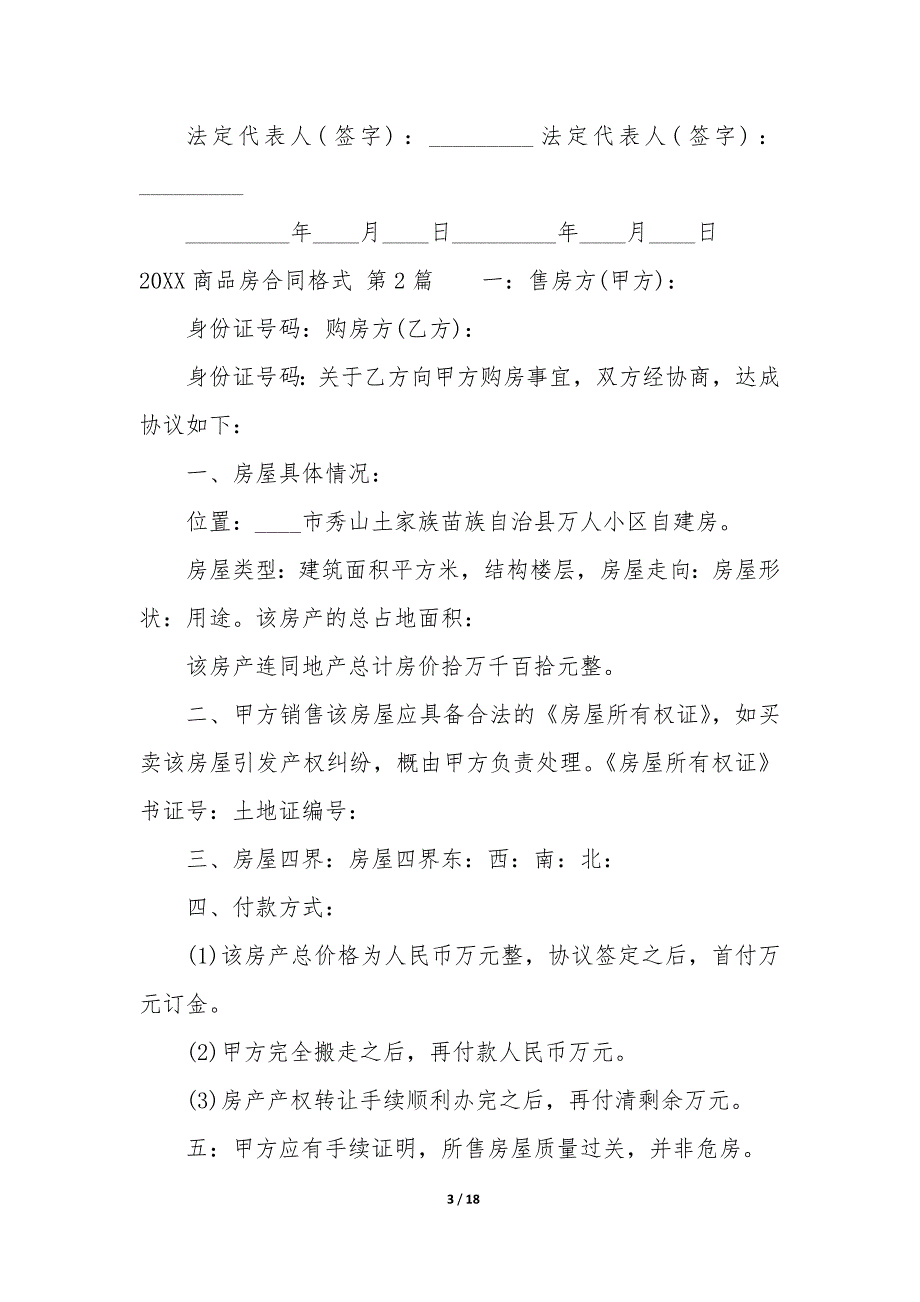 法定代表人(签字)：_________法定代表人(签字)：
_________
_________年____月____日_________年____月____日
20XX商品房合同格式 第2篇　　一：售房方(甲方)：
身份证号码：购房方(乙方)：
身份证号码：关于乙方向甲方购房事宜，双方经协商，达成
协议如下：
一、房屋具体情况：
位置：____市秀山土家族苗族自治县万人小区自建房。
房屋类型：建筑面积平方米，结构楼层，房屋走向：房屋形
状：用途。该房产的总占地面积：
该房产连同地产总计房价拾万千百拾元整。
二、甲方销售该房屋应具备合法的《房屋所有权证》，如买
卖该房屋引发产权纠纷，概由甲方负责处理。《房屋所有权证》
书证号：土地证编号：
三、房屋四界：房屋四界东：西：南：北：
四、付款方式：
(1)该房产总价格为人民币万元整，协议签定之后，首付万
元订金。
(2)甲方完全搬走之后，再付款人民币万元。
(3)房产产权转让手续顺利办完之后，再付清剩余万元。
五：甲方应有手续证明，所售房屋质量过关，并非危房。
3 / 18